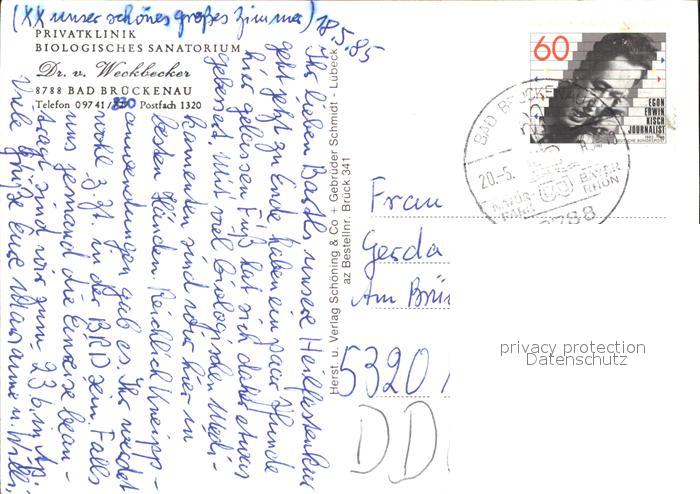 (XX unser schönes großes Zimmer)
18.5.85
PRIVATKLINIK
BIOLOGISCHES SANATORIUM
Dr. v. Weckbecker
8788 BAD BRÜCKENAU
Telefon 09741/830 Postfach 1320
Ihr lieben Bartls unsere Heilfastenkur
geht jetzt zu Ende haben ein paar Pfunde
hier gelassen Fuß hat sich daher etwas
gebessert. Mit viel biologischen Medi-
kamenten sind wir hier in
besten Händen. Reichlich Kneipp-
anwendungen gab es. Ihr werdet
wohl z. Zt. in der BRD sein. Falls
uns jemand die Einreise bean-
tragt sind wir zum 23.6. in
Viele Grüße Eure Marianne u. Willi
Herst. u. Verlag Schöning & Co + Gebrüder Schmidt - Lübeck
az Bestellnr. Brück 341
60
EGON
ERWIN
KISCH
JOURNALIST
DEUTSCHE BUNDESPOST
BAD BRÜCKENAU
20.-5.
NATUR-
PARK
BAYER
RHÖN
8788
Frau
Gerda
Am Brü
5320
DD
privacy protection
Datenschutz